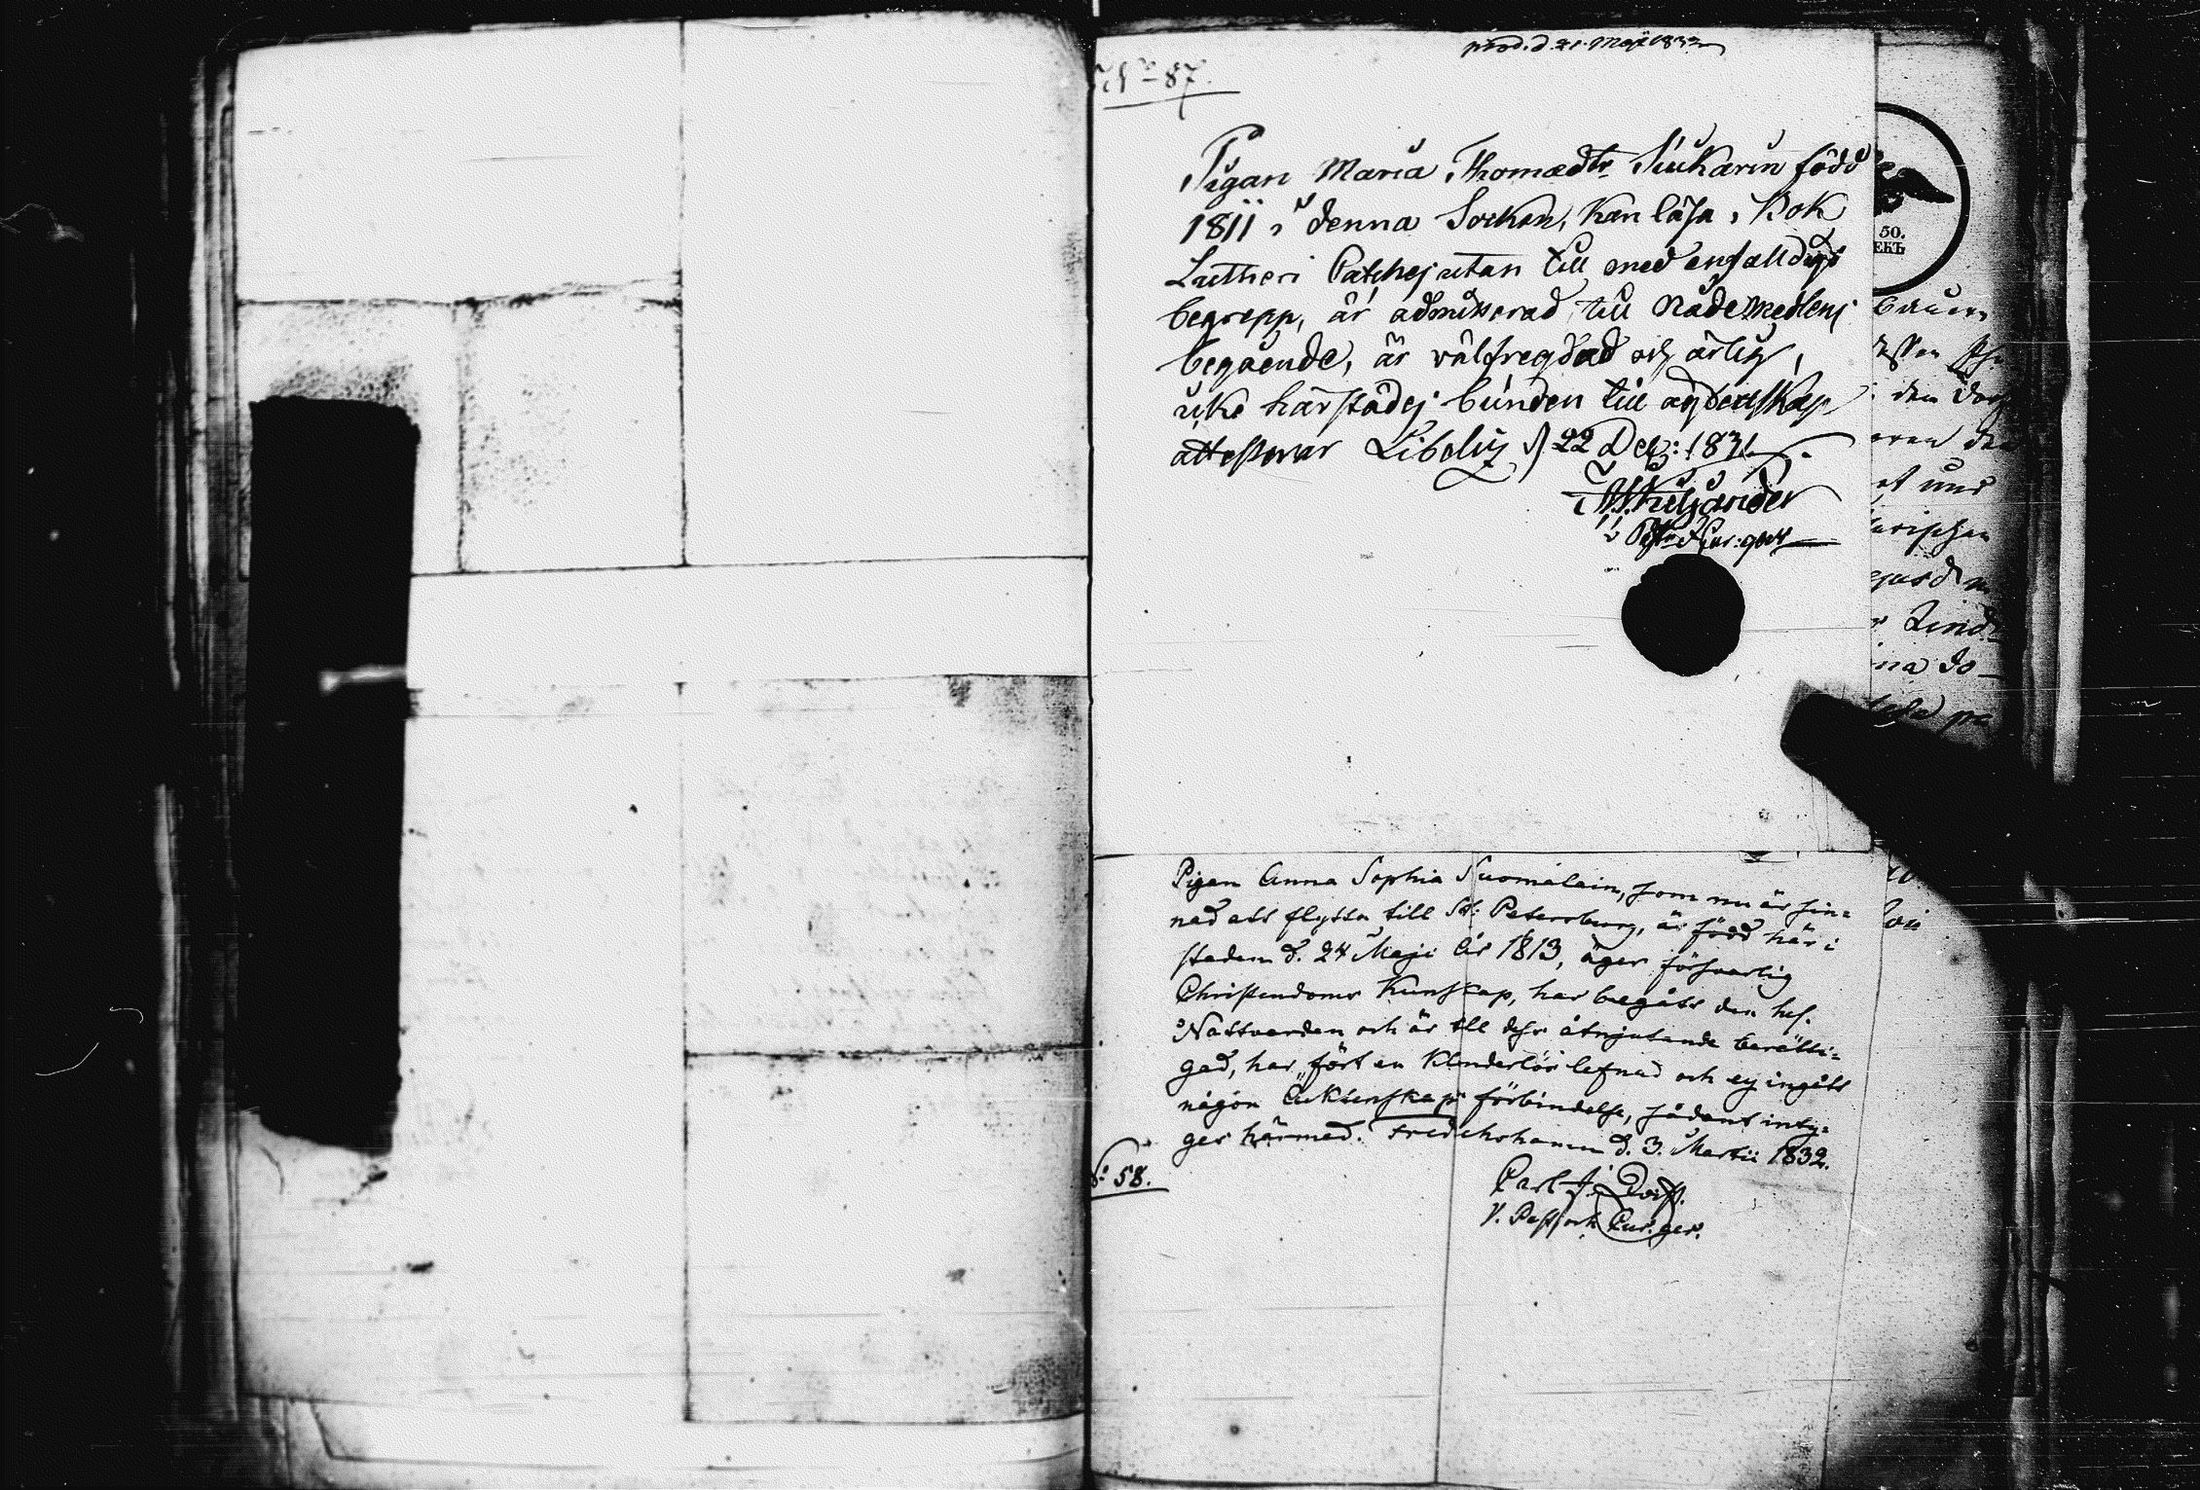 prod. d. 21. Maji 1832
No 87.
Pigan Maria Thomædtr Siukarin född
1811 i denna Socken, kan läsa i Bok
Lutheri Catchej utan till med enfalldigt
begrepp, är admitterad till Nådemedlens
begående, är välfregdad och ärlig,
icke härstädes bunden till ägtenskap
attesterar Libelitz d 22 Dec: 1831.
Kiljander
Past: Cur: ger
bauern
den Dorf
und
Lind
na do-
50.
ЕКЪ
Pigan Anna Sophia Suomalain, som nu är sin-
nad att flytta till St: Petersburg, är född här i
staden d. 24 Maji år 1813, äger försvarlig
Christendoms Kunskap, har begått den hel.
Nattvarden och är till dess åtnjutande berätti-
gad, har fört en klanderlös lefnad och ej ingått
någon Äcktenskaps förbindelse, sådant inty-
gar härmed. Fredrikshamn d. 3. Martii 1832.
No 58.
Carl J.
V. Pastor Cur. ger.